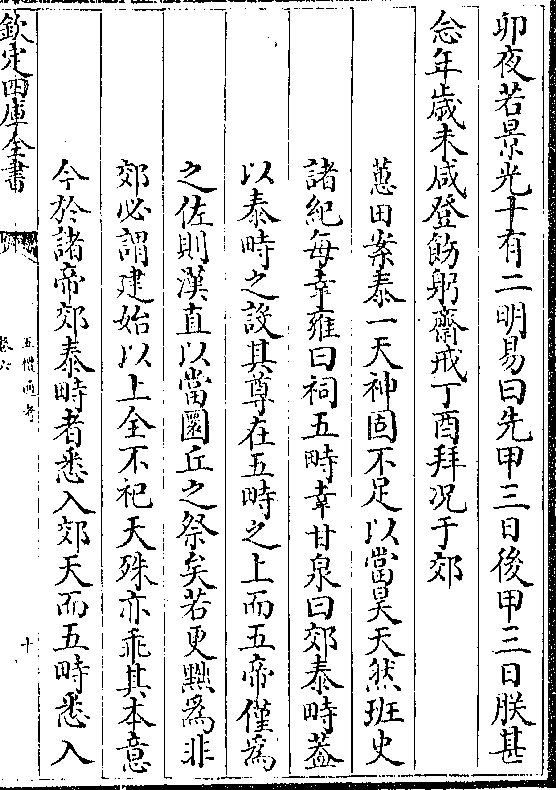 卯夜若景光十有二明易曰先甲三日後甲三日朕甚
念年歲未咸登飭躬齋戒丁酉拜况于郊
蕙田案泰一天神固不足以當昊天然班史
諸紀每幸雍曰祠五畤幸甘泉曰郊泰畤蓋
以泰畤之設其尊在五畤之上而五帝僅為
之佐則漢直以當圜丘之祭矣若更黜為非
郊必謂建始以上全不祀天殊亦乖其本意
今於諸帝郊泰畤者悉入郊天而五畤悉入
欽定四庫全書
五禮通考
卷六
十